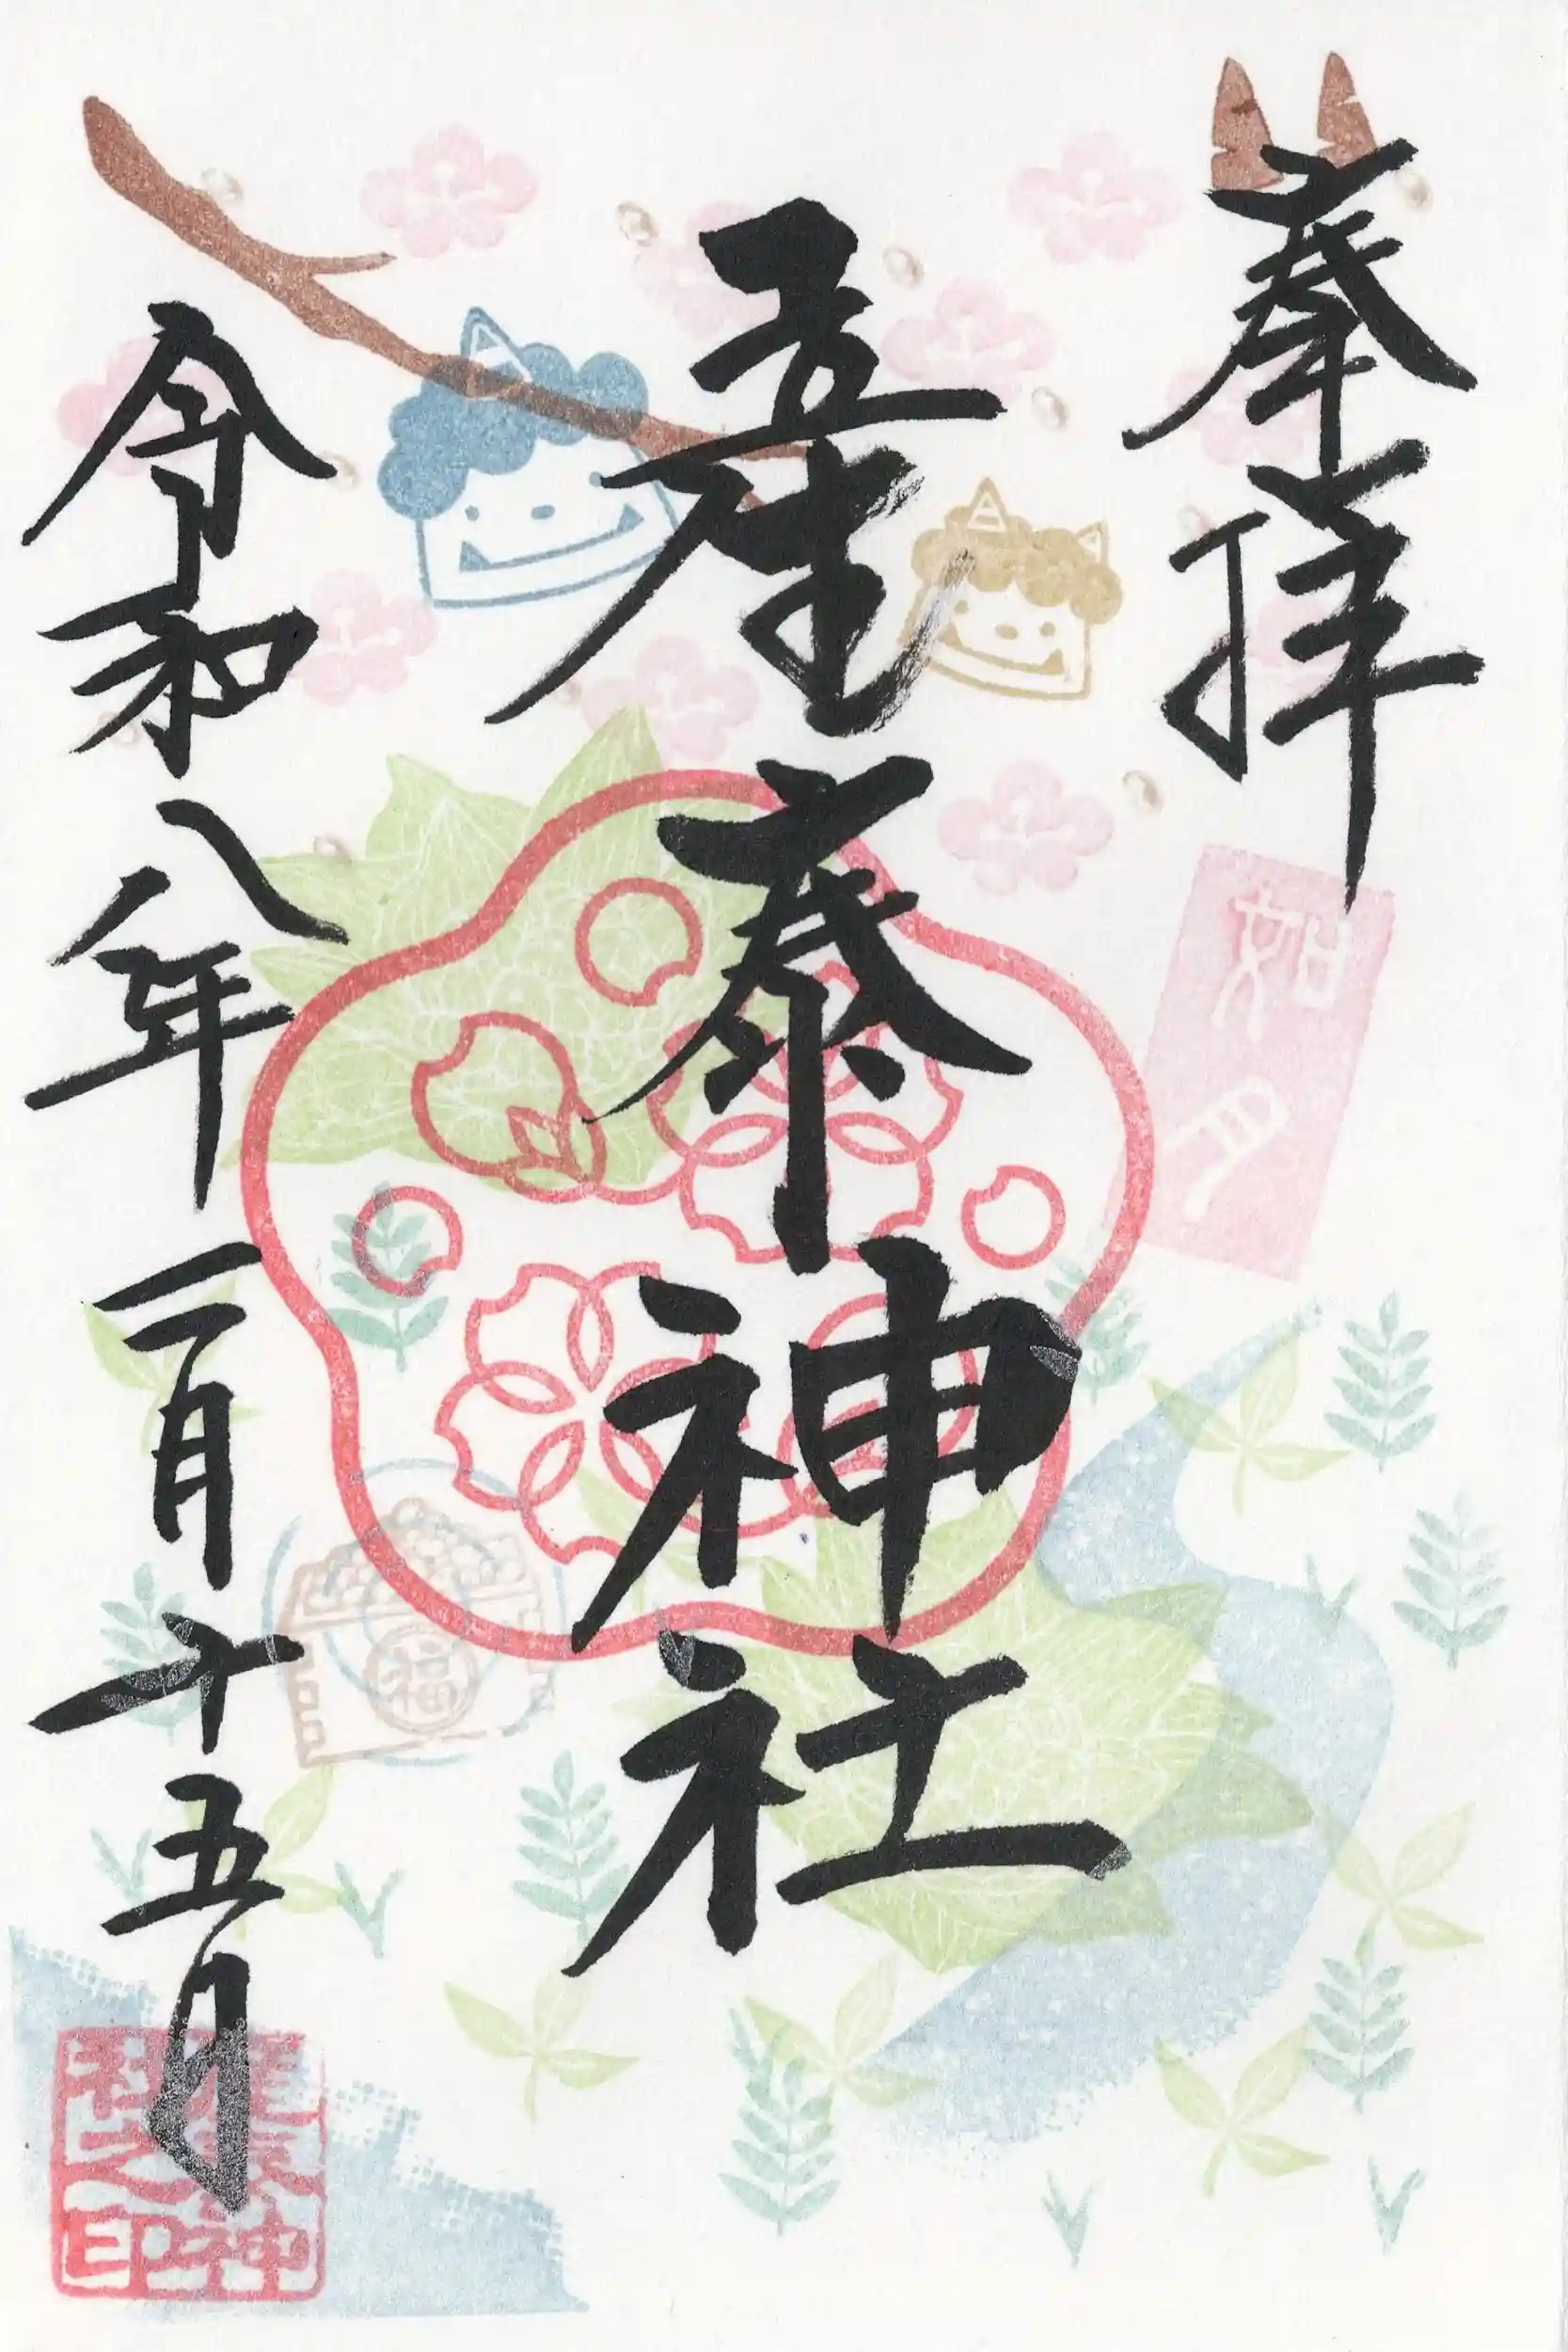 奉拝
産泰神社
令和八年二月十五日
如月
福
産泰神社之印